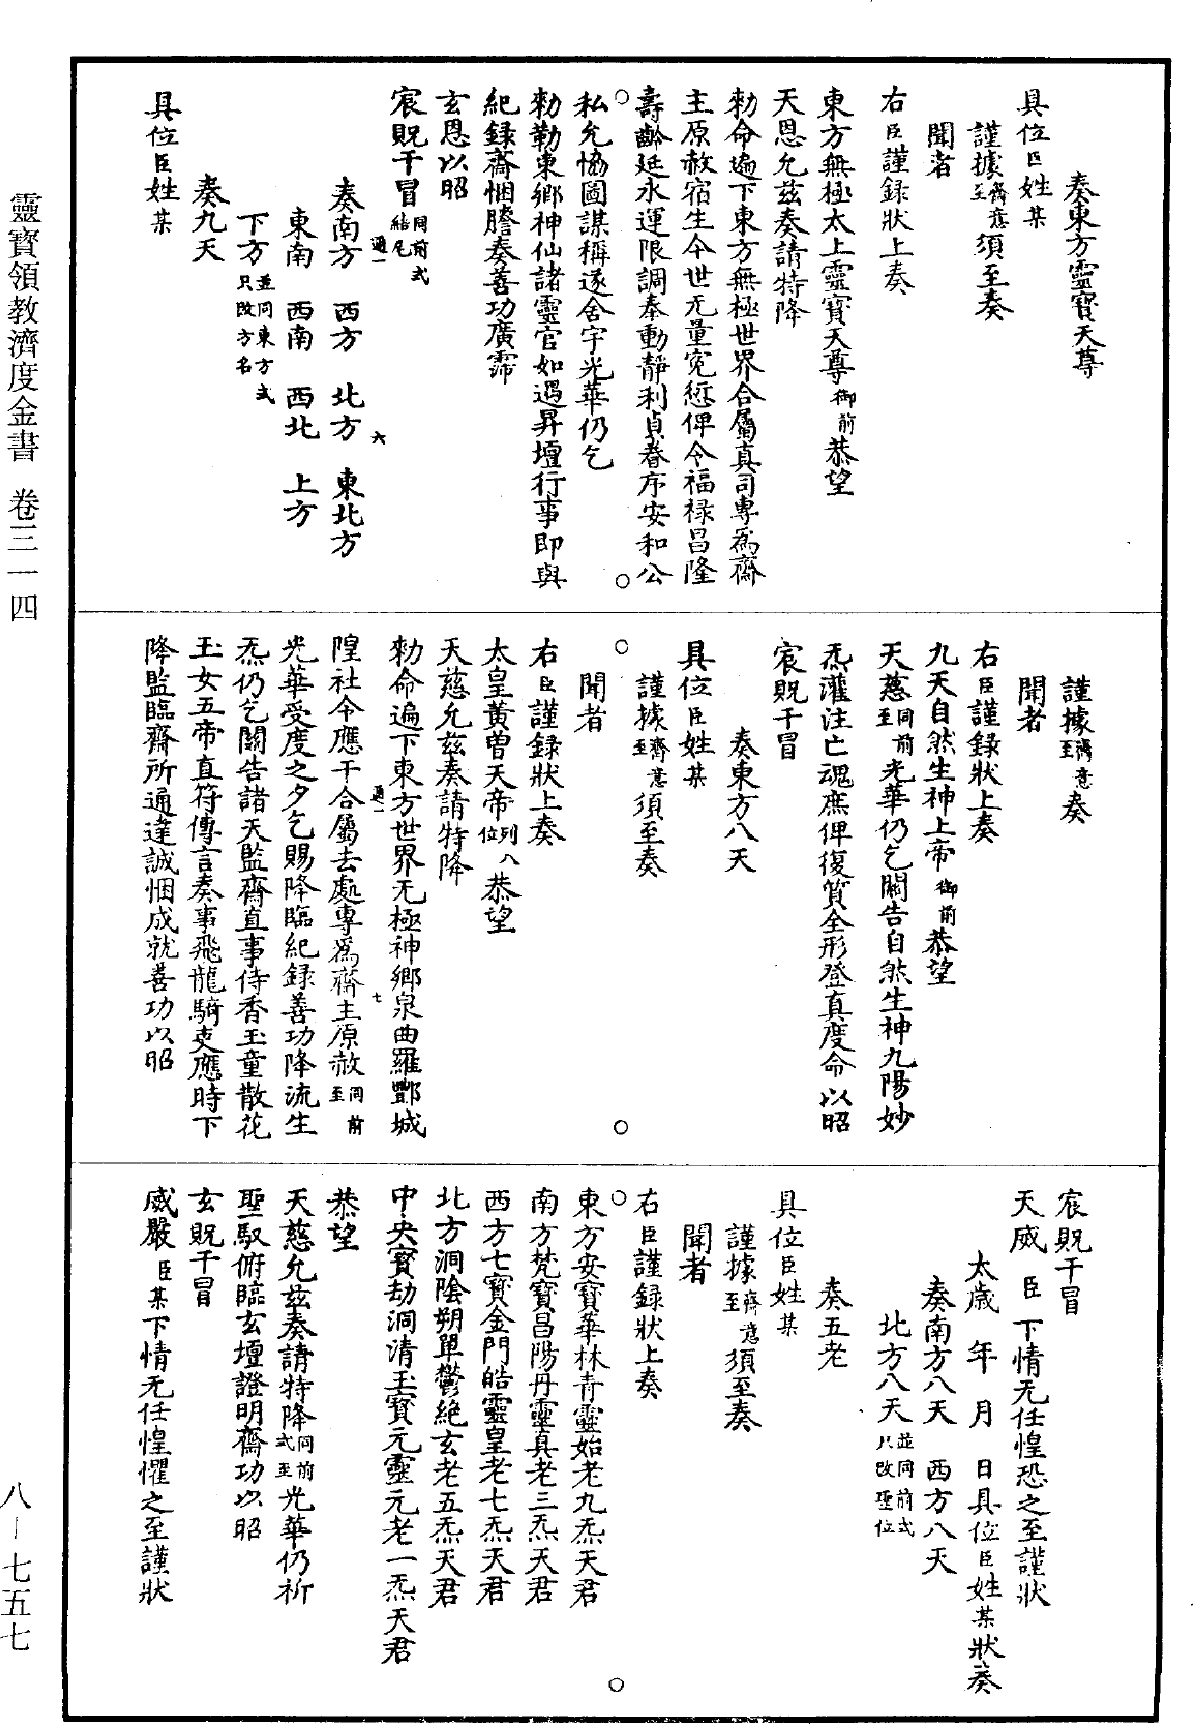 奏東方靈寶天尊
具位臣姓某
謹據齋意至須至奏
聞者
右臣謹錄狀上奏
東方無極太上靈寶天尊御前恭望
天恩允兹奏請特降
勑命遍下東方無極世界合屬真司專為齋
主原赦宿生今世无量寃愆俾令福禄昌隆
壽齡延永運限調奉動靜利貞眷序安和公
私允恊圖謀稱遂舍宇光華仍乞
勑勒東鄉神仙諸靈官如遇昇壇行事即與
紀録齋悃騰奏善功廣霈
玄恩以昭
宸貺干冒同前式結尾
通一
六
奏南方 西方 北方 東北方
東南 西南 西北 上方
下方並同東方式只改方名
奏九天
具位臣姓某
謹據齋意至奏
聞者
右臣謹錄狀上奏
九天自然生神上帝御前恭望
天慈同前至光華仍乞關告自然生神九陽妙
炁灌注亡魂庶俾復質全形登真度命以昭
宸貺干冒
奏東方八天
具位臣姓某
謹據齋意至須至奏
聞者
右臣謹録狀上奏
太皇黄曽天帝列八位恭望
天慈允兹奏請特降
勑命遍下東方世界无極神鄉泉曲羅酆城
通一
七
隍社令應干合屬去處專為齋主原赦同前至
光華受度之夕乞賜降臨紀録善功降流生
炁仍乞關告諸天監齋直事侍香玉童散花
玉女五帝直符傳言奏事飛龍騎吏應時下
降監臨齋所通達誠悃成就善功以昭
宸貺干冒
天威 臣 下情无任惶恐之至謹狀
太歲 年 月 日具位臣姓某狀奏
奏南方八天 西方八天
北方八天並同前式只改聖位
奏五老
具位臣姓某
謹據齋意至須至奏
聞者
右臣謹録狀上奏
東方安寶華林青靈始老九炁天君
南方梵寶昌陽丹靈真老三炁天君
西方七寶金門皓靈皇老七炁天君
北方洞陰朔單鬱絶玄老五炁天君
中央寳劫洞清玉寳元靈元老一炁天君
恭望
天慈允兹奏請特降同前式至光華仍祈
聖馭俯臨玄壇證明齋功以昭
玄貺干冒
威嚴 臣某下情无任惶懼之至謹狀
靈寶領教濟度金書 卷三一四
八—七五七